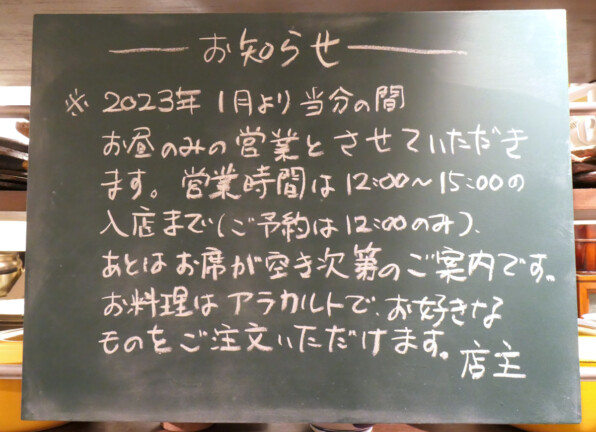 お知らせ
※ 2023年 1月より当分の間
お昼のみの営業とさせていただき
ます。営業時間は12:00～15:00の
入店まで(ご予約は12:00のみ)、
あとはお席が空き次第のご案内です。
お料理はアラカルトで、お好きな
ものをご注文いただけます。
店主